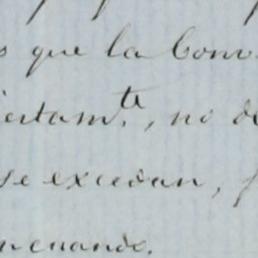 s que la Conv
iertam.te, no de
se excedan, f
n cuando.